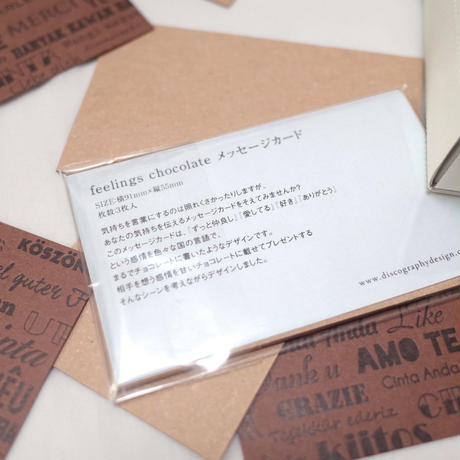 MERCI
BANYAK KAWAN
feelings chocolate メッセージカード
SIZE:横91mm×縦55mm
枚数:3枚入
気持ちを言葉にするのは照れくさかったりしますが、
あなたの気持ちを伝えるメッセージカードをそえてみませんか?
このメッセージカードは、「ずっと仲良し」「愛してる」「好き」「ありがとう」
という感情を色々な国の言語で、
まるでチョコレートに書いたようなデザインです。
相手を想う感情を甘いチョコレートに載せてプレゼントする
そんなシーンを考えながらデザインしました。
www.discographydesign.co
KÖSZÖN
guter
Like
AMO TE
Cinta Anda
GRAZIE
Teşekkür ederiz
kiitos